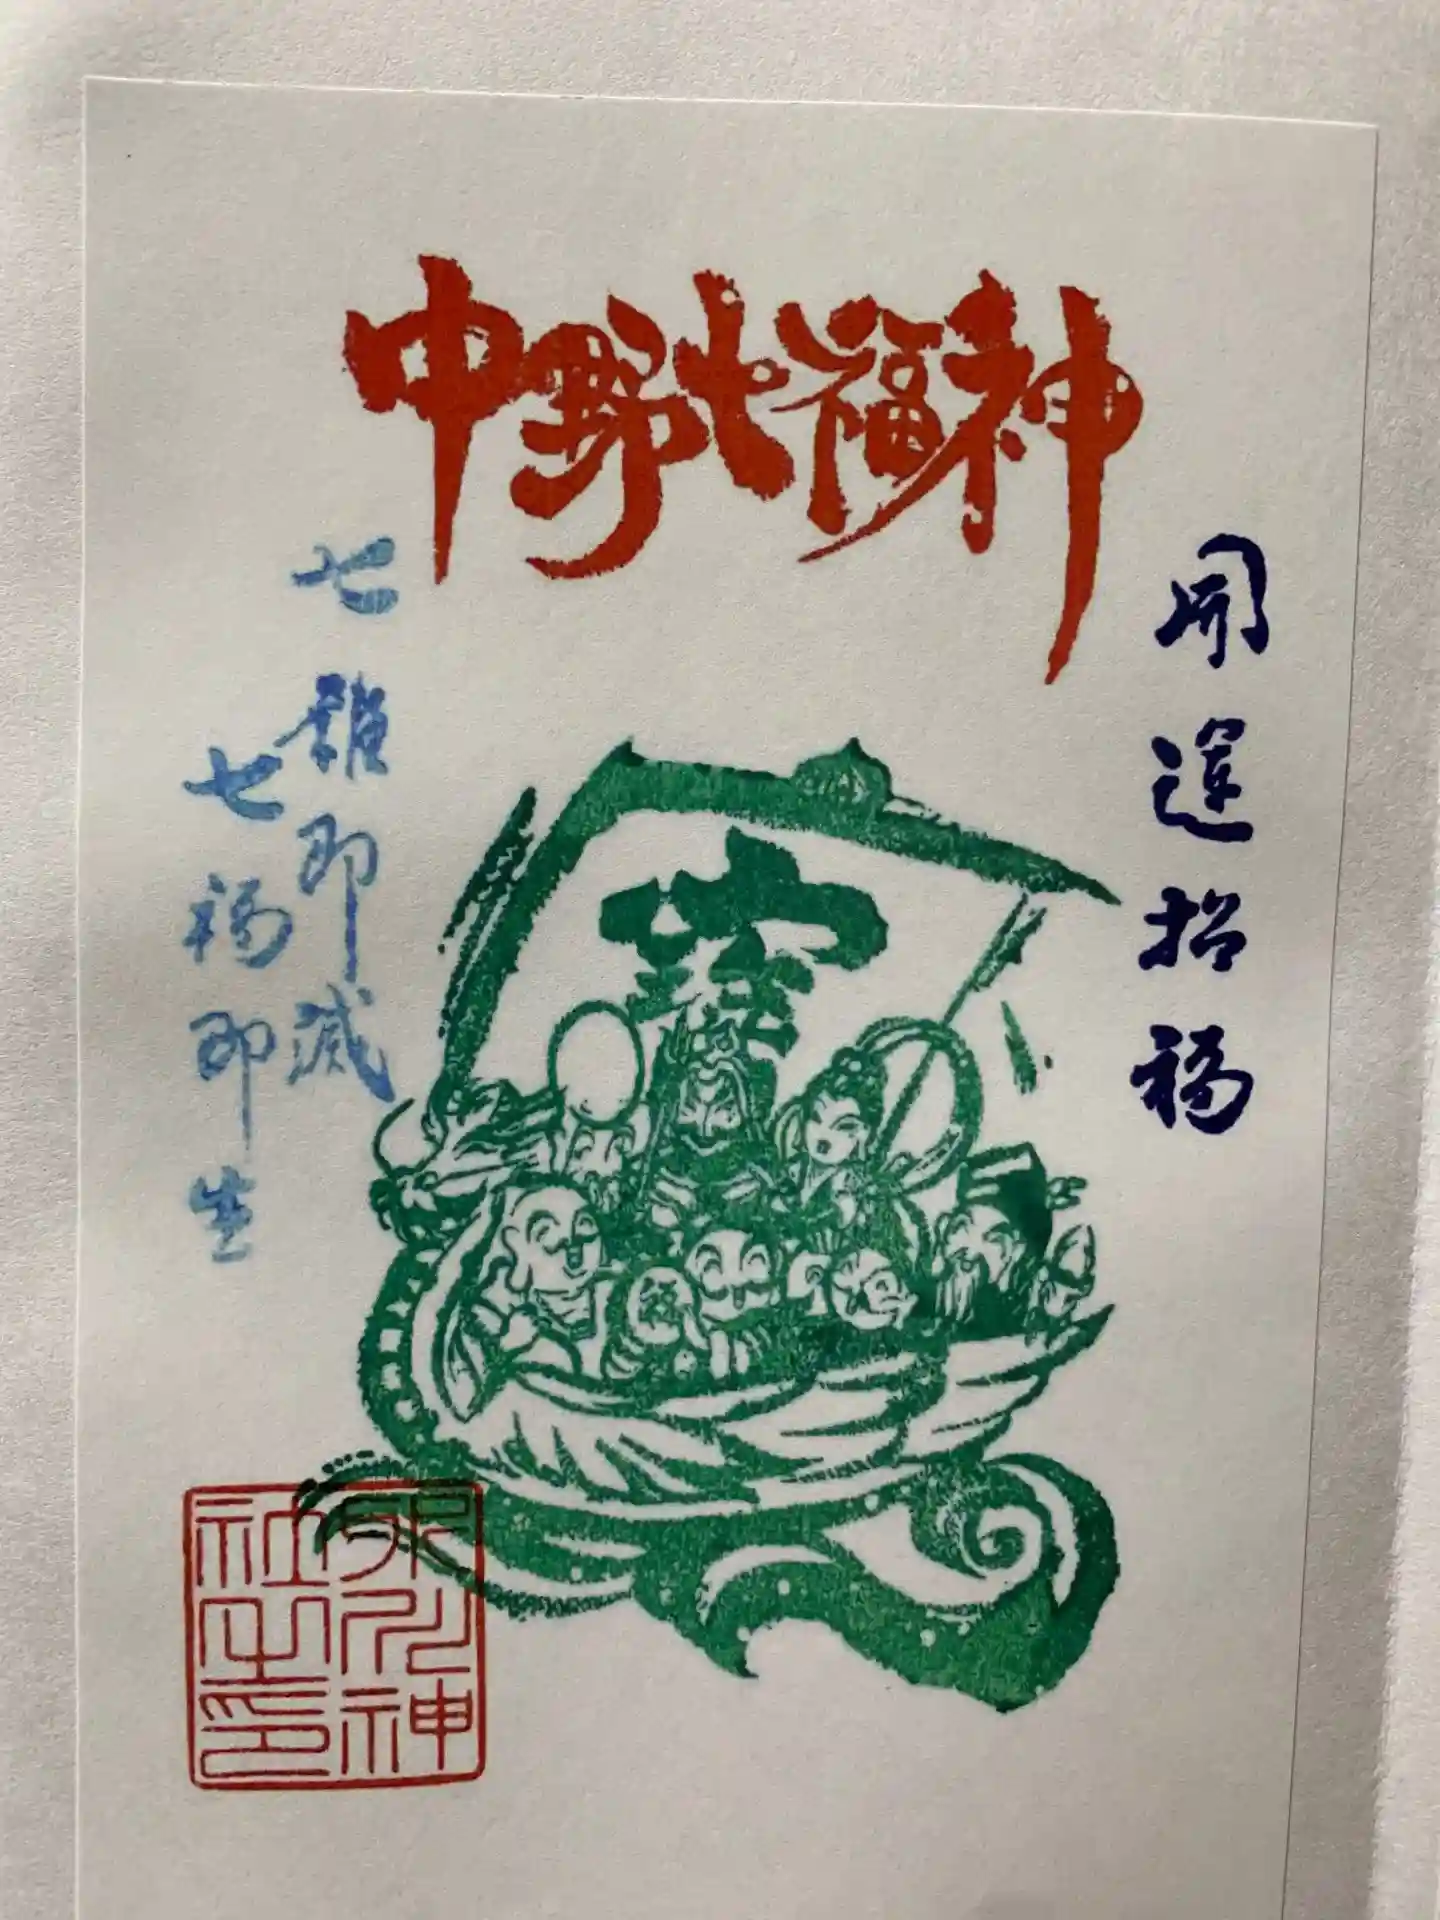 中野七福神
開運招福
寶
七難即滅
七福即生
氷川神
社之印